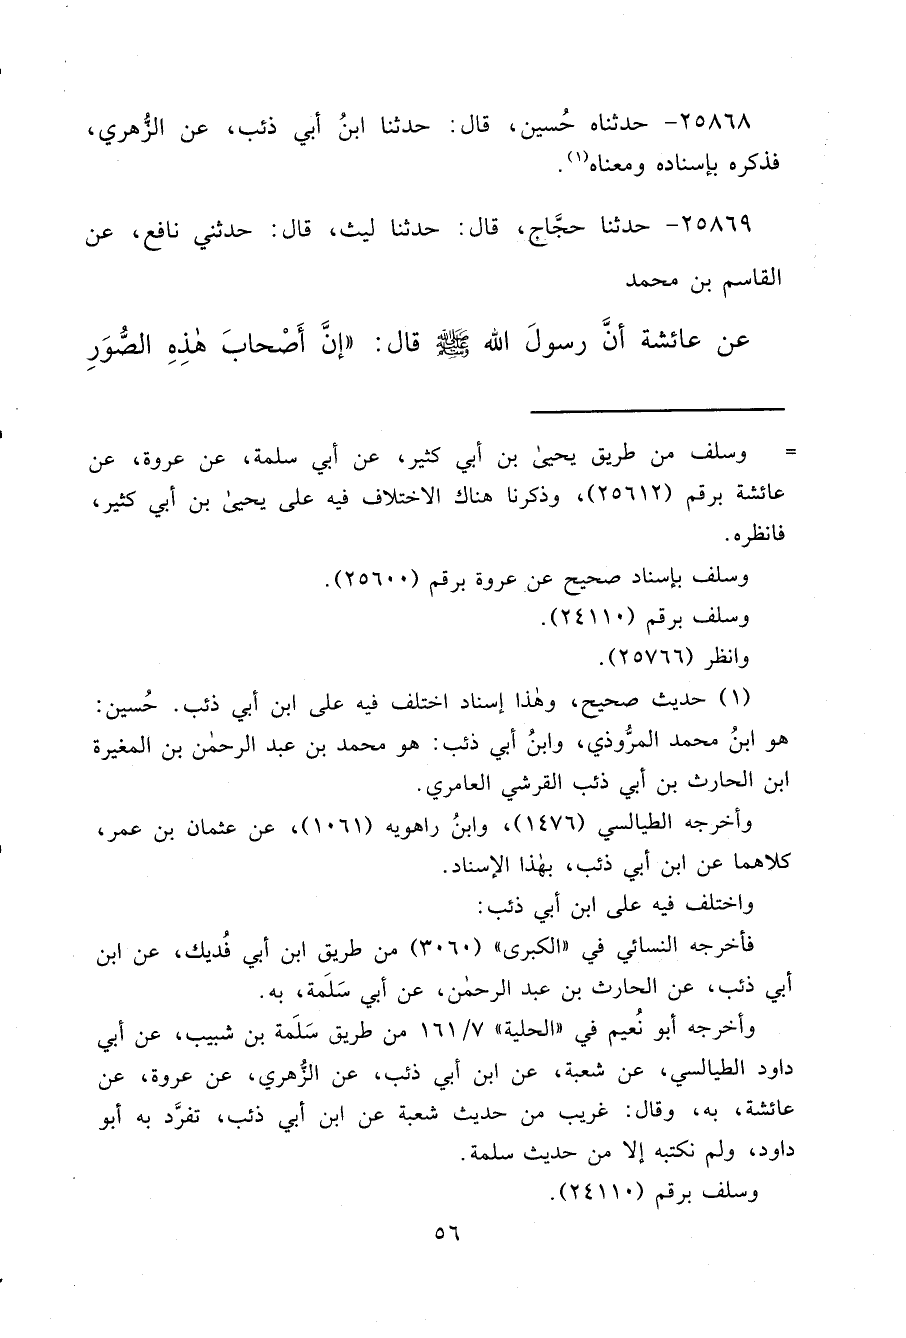 ٢٥٨٦٨- حدثناه حُسين، قال: حدثنا ابنُ أبي ذئب، عن الزُّهري،
فذكره بإسناده ومعناه(١).
٢٥٨٦٩- حدثنا حجَّاج، قال: حدثنا ليث، قال: حدثني نافع، عن
القاسم بن محمد
عن عائشة أنَّ رسولَ الله ﷺ قال: «إنَّ أَصْحابَ هٰذِهِ الصُّوَرِ
= وسلف من طريق يحيىٰ بن أبي كثير، عن أبي سلمة، عن عروة، عن
عائشة برقم (٢٥٦١٢)، وذكرنا هناك الاختلاف فيه على يحيىٰ بن أبي كثير،
فانظره.
وسلف بإسناد صحيح عن عروة برقم (٢٥٦٠٠).
وسلف برقم (٢٤١١٠).
وانظر (٢٥٧٦٦).
(١) حديث صحيح، وهٰذا إسناد اختلف فيه على ابن أبي ذئب. حُسين:
هو ابنُ محمد المرُّوذي، وابنُ أبي ذئب: هو محمد بن عبد الرحمٰن بن المغيرة
ابن الحارث بن أبي ذئب القرشي العامري.
وأخرجه الطيالسي (١٤٧٦)، وابنُ راهويه (١٠٦١)، عن عثمان بن عمر،
كلاهما عن ابن أبي ذئب، بهٰذا الإسناد.
واختلف فيه على ابن أبي ذئب:
فأخرجه النسائي في «الكبرى» (٣٠٦٠) من طريق ابن أبي فُديك، عن ابن
أبي ذئب، عن الحارث بن عبد الرحمٰن، عن أبي سَلَمة، به.
وأخرجه أبو نُعيم في «الحلية» ١٦١/٧ من طريق سَلَمة بن شبيب، عن أبي
داود الطيالسي، عن شعبة، عن ابن أبي ذئب، عن الزُّهري، عن عروة، عن
عائشة، به، وقال: غريب من حديث شعبة عن ابن أبي ذئب، تفرَّد به أبو
داود، ولم نكتبه إلا من حديث سلمة.
وسلف برقم (٢٤١١٠).
٥٦